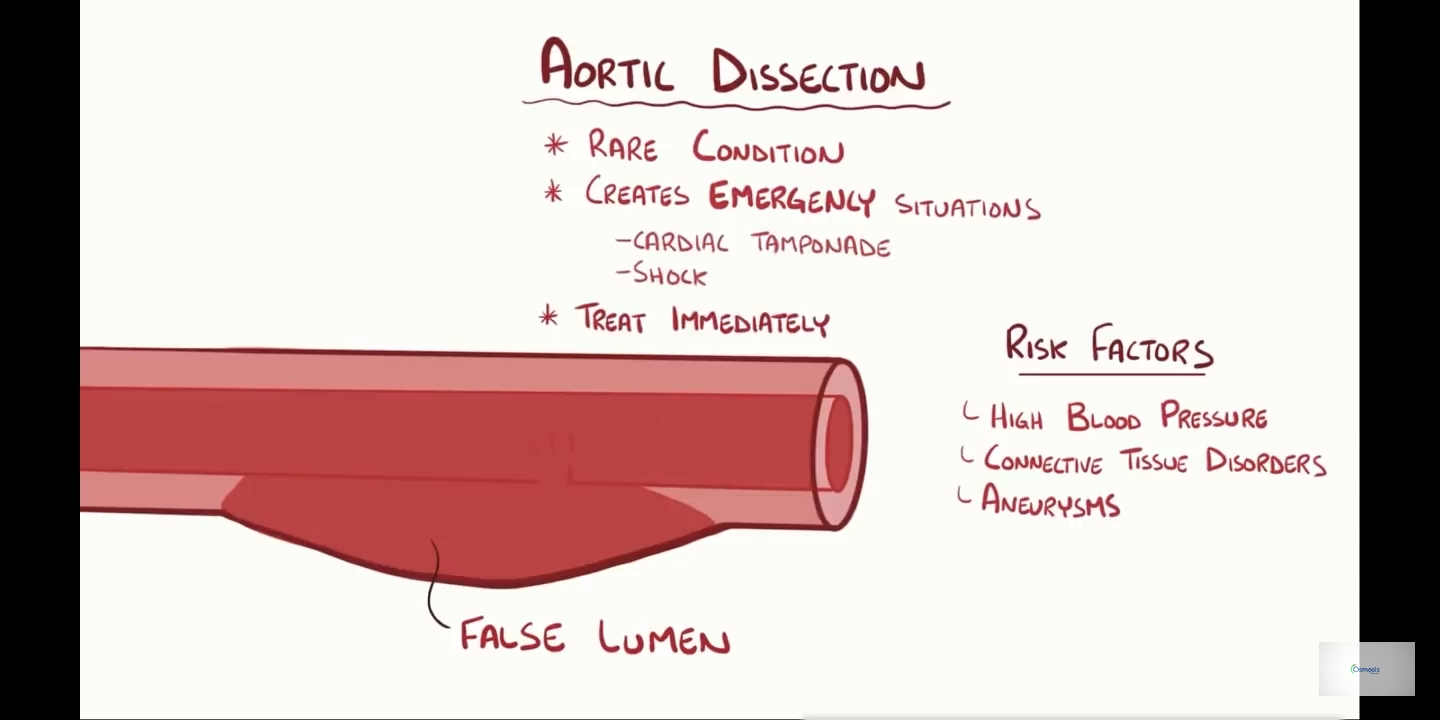 AORTIC DISSECTION
* RARE CONDITION
* CREATES EMERGENCY SITUATIONS
-CARDIAC TAMPONADE
-SHOCK
* TREAT IMMEDIATELY
RISK FACTORS
HIGH BLOOD PRESSURE
CONNECTIVE TISSUE DISORDERS
ANEURYSMS
FALSE LUMEN
Osmosis